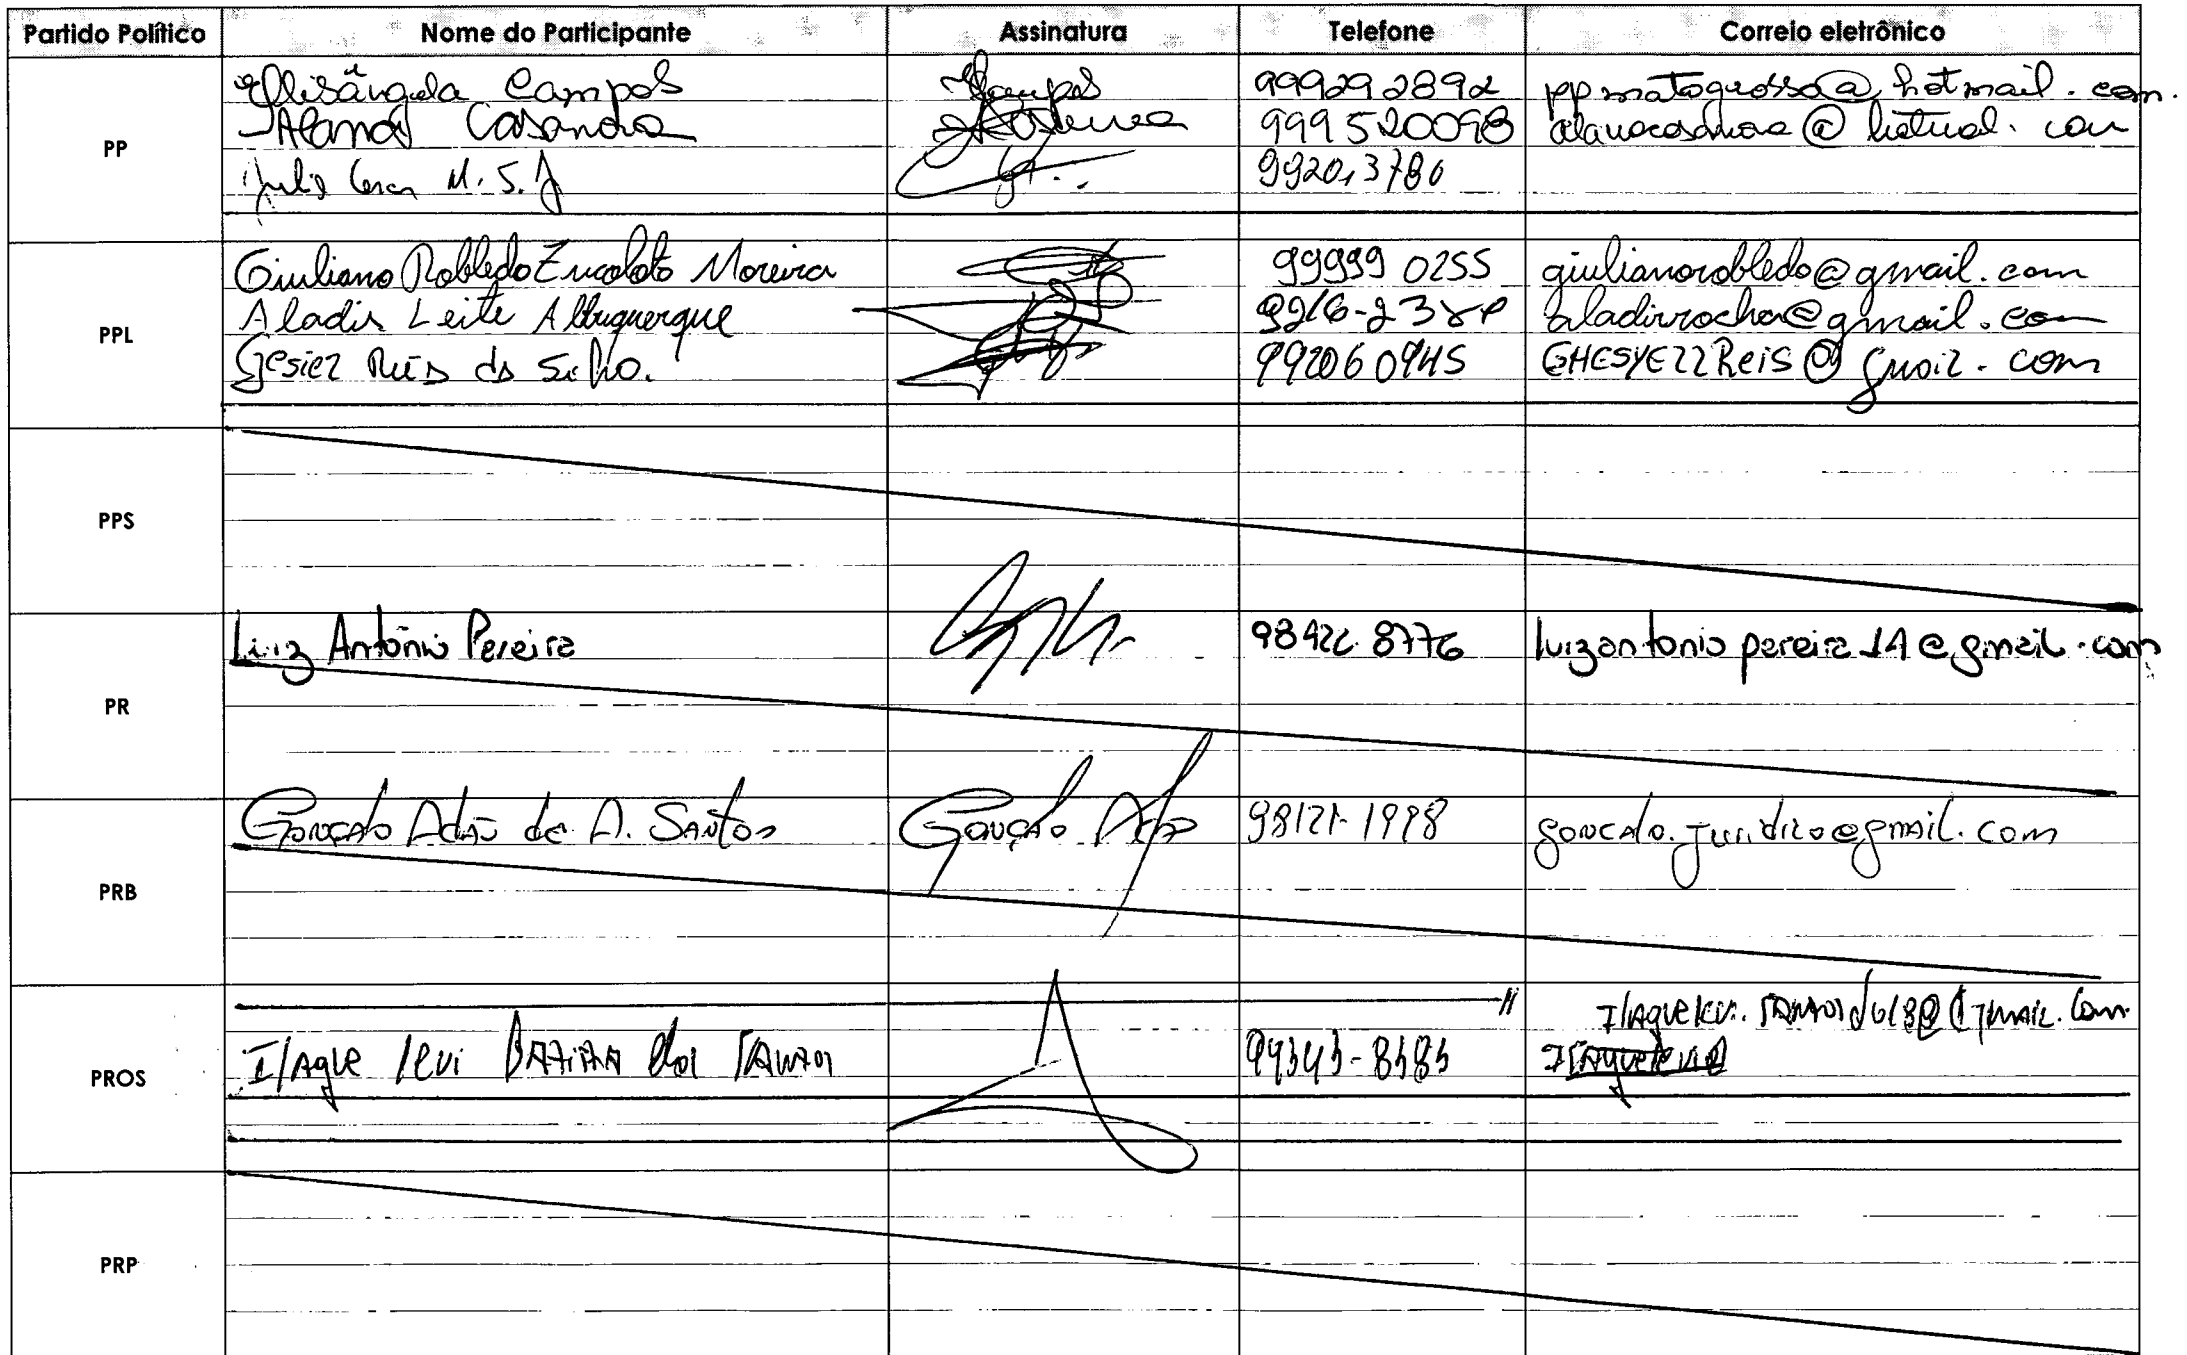 Partido Político Nome do Participante Assinatura Telefone Correio eletrônico
PP
Elisângela Campos Campos 999292892 ppmatogrosso@hotmail.com.
Alana Casanova 999520098
Julio Cesar M. S. J 99201,3780
PPL
Giuliano Robledo Zucoloto Moreira 99999 0255 giulianorobledo@gmail.com
Aladir Leite Albuquerque aladirrocha@gmail.com
Gesiez Reis da Silva. 992060945 GHESYEZZReis@gmail.com
PPS
PR
Luiz Antônio Pereira 98422-8776 luizantoniopereira14@gmail.com
PRB
Gonçalo Adão de A. Santos Gonçalo Adão 98121-1998 goncalo.juridico@gmail.com
PROS
Isaque levi Batista dos Santos
PRP